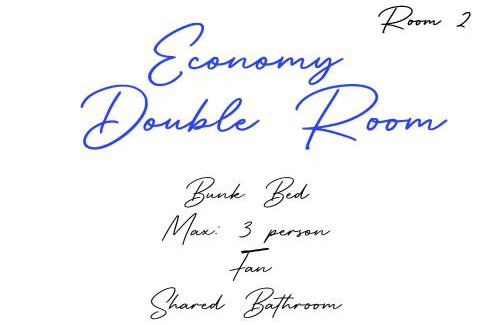 Room 2
Economy
Double Room
Bunk Bed
Max: 3 person
Fan
Shared Bathroom